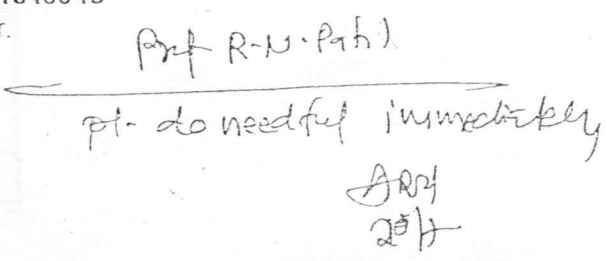 Prof R.N. Patil
pl. do needful immediately